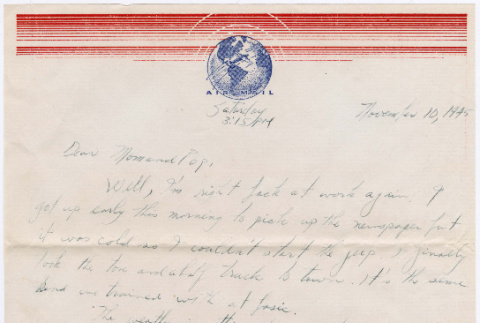 AIR MAIL
Saturday
3:15 PM
November 10, 1945
Dear Mom and Pop,
Well, I'm right back at work again. I
got up early this morning to pick up the newspaper but
it was cold so I couldn't start the jeep & finally
took the ton and a half truck to town. It's the same
kind we trained with at basic.
The weather